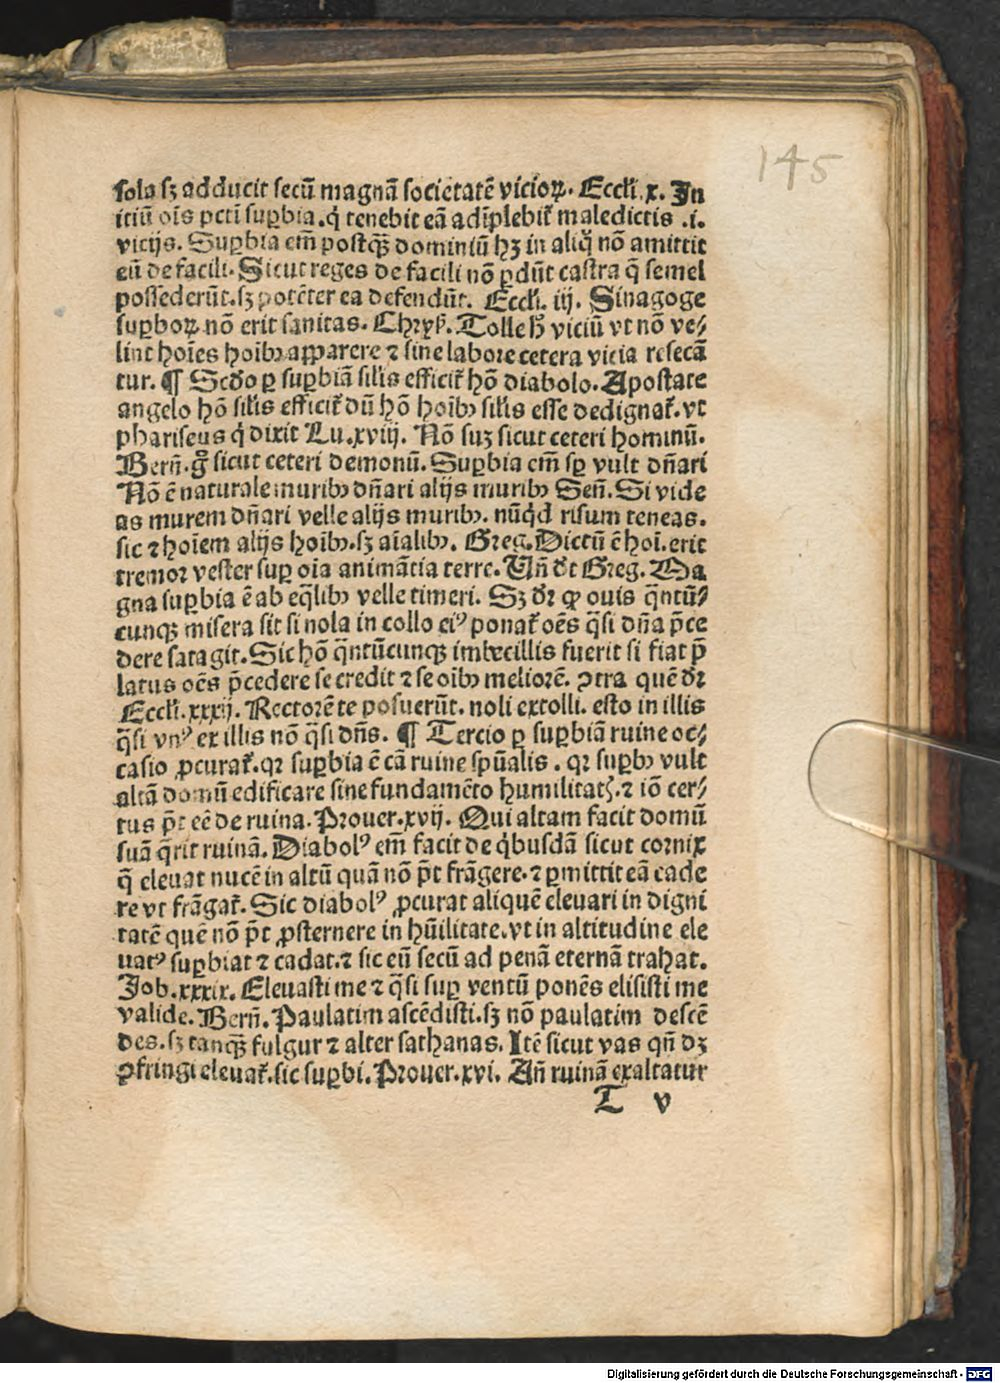 145
sola sꝫ adducit secū magnā societatē vicioꝝ. Eccl'i.x. In
itiū oīs pctī suꝑbia.q̇ tenebit eā adīplebit᷑ maledictis .i.
vicijs. Suꝑbia em̄ postqꝫ̄ dominiū hꝫ in aliq̇ nō amittit
eū de facili. Sicut reges de facili nō ꝑdūt castra q̄ semel
possederūt.sꝫ potēter ea defendūt. Eccl'i. iij. Sinagoge
suꝑboꝝ nō erit sanitas. Chrys̄. Tolle h̄ viciū vt nō ve⸗
lint hoīes hoībꝰ apparere ⁊ sine labore cetera vicia resecā
tur. ¶ Scd̄o ꝑ suꝑbiā sil'is efficit᷑ hō diabolo. Apostate
angelo hō sil'is efficit᷑ dū hō hoībꝰ sil'is esse dedignat᷑. vt
phariseus q̇ dixit Lu.xviij. Nō suꝫ sicut ceteri hominū.
Bern̄. g̊ sicut ceteri demonū. Suꝑbia em̄ sꝑ vult dn̄ari
Nō ē naturale muribꝰ dn̄ari alijs muribꝰ Sen̄. Si vide
as murem dn̄ari velle alijs muribꝰ. nūq̇d risum teneas.
sic ⁊ hoīem alijs hoībꝰ.sꝫ aīalibꝰ. Greg. Dictū ē hoī. erit
tremor vester suꝑ oīa animātia terre. Vn̄ dt̄ Greg. Ma
gna suꝑbia ē ab eq̄libꝰ velle timeri. Sꝫ dr̄ ꝙ ouis q̄ntū⸗
cunqꝫ misera sit si nola in collo eiꝰ ponat᷑ oēs q̄si dn̄a p̄ce
dere satagit. Sic hō q̄ntūcunqꝫ imbecillis fuerit si fiat p̄
latus oēs p̄cedere se credit ⁊ se oībꝰ meliorē. ꝯtra quē dr̄
Eccl'i.xxxij. Rectorē te posuerūt. noli extolli. esto in illis
q̄si vnꝰ ex illis nō q̄si dn̄s. ¶ Tercio ꝑ suꝑbiā ruine oc⸗
casio ꝓcurat᷑. qꝛ suꝑbia ē cā ruine spūalis . qꝛ suꝑbꝰ vult
altā domū edificare sine fundamēto humilitatꝭ. ⁊ iō cer⸗
tus p̄t eē de ruina. Prouer.xvij. Qui altam facit domū
suā q̄rit ruinā. Diabolꝰ em̄ facit de q̇busdā sicut cornix
q̄ eleuat nucē in altū quā nō p̄t frāgere. ⁊ ꝑmittit eā cade
re vt frāgat᷑. Sic diabolꝰ ꝓcurat aliquē eleuari in digni
tatē quē nō p̄t ꝓsternere in hūilitate. vt in altitudine ele
uatꝰ suꝑbiat ⁊ cadat. ⁊ sic eū secū ad penā eternā trahat.
Job.xxxix. Eleuasti me ⁊ q̄si suꝑ ventū ponēs elisisti me
valide. Bern̄. Paulatim ascēdisti. sꝫ nō paulatim descē
des. sꝫ tanqꝫ̄ fulgur ⁊ alter sathanas. Itē sicut vas qn̄ dꝫ
ꝯfringi eleuat᷑. sic suꝑbi. Prouer.xvi. An̄ ruinā exaltatur
T v
Digitalisierung gefördert durch die Deutsche Forschungsgemeinschaft - DFG